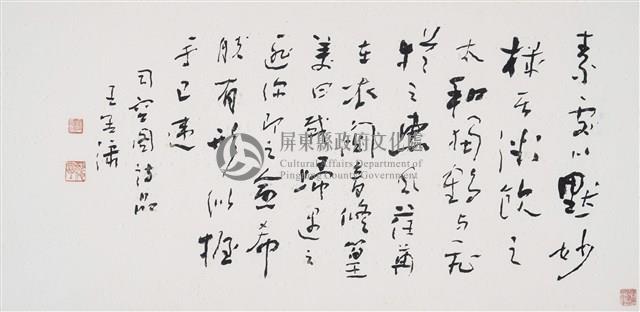 素處以默妙
機其微飲之
太和獨鶴與飛
猶之惠風荏苒
在衣閱音修篁
美曰載歸遇之
匪深即之愈希
脫有形似握
手已違
司空圖詩品
王
屏東縣政府文化處
Cultural Affairs Department of
Pingtung County Government